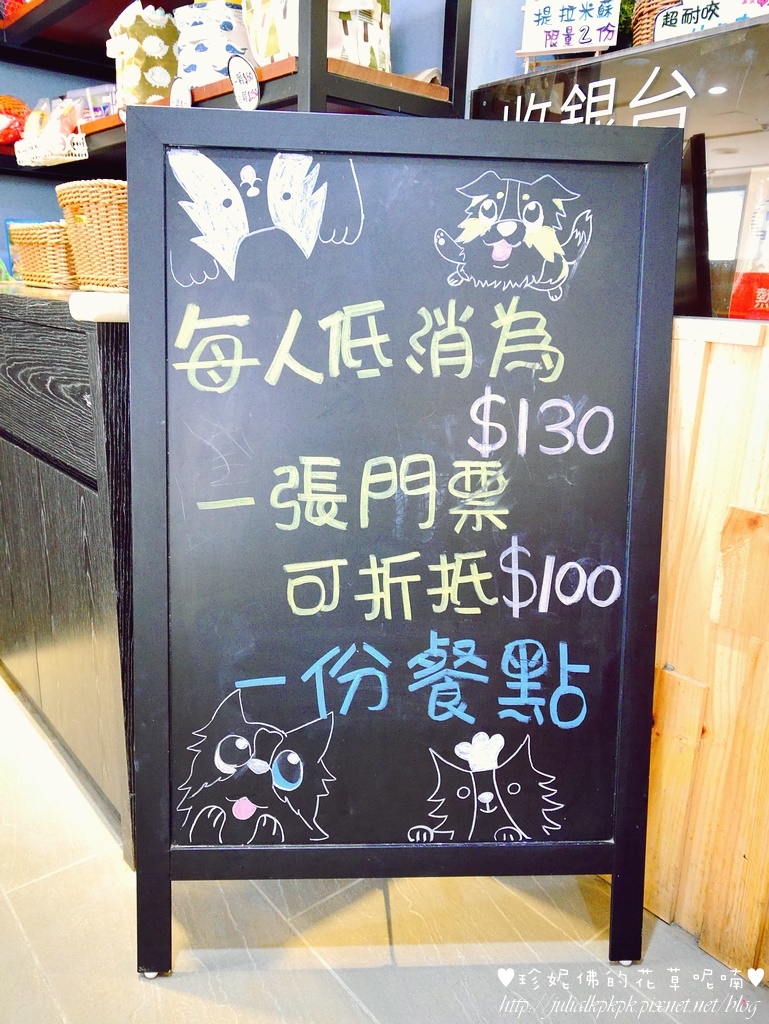 提拉米蘇
限量2份
超耐咬
收銀台
每人低消為
$130
一張門票
可折抵$100
一份餐點
熱
♥珍妮佛的花草呢喃♥
http://julialkpkpk.pixnet.net/blog